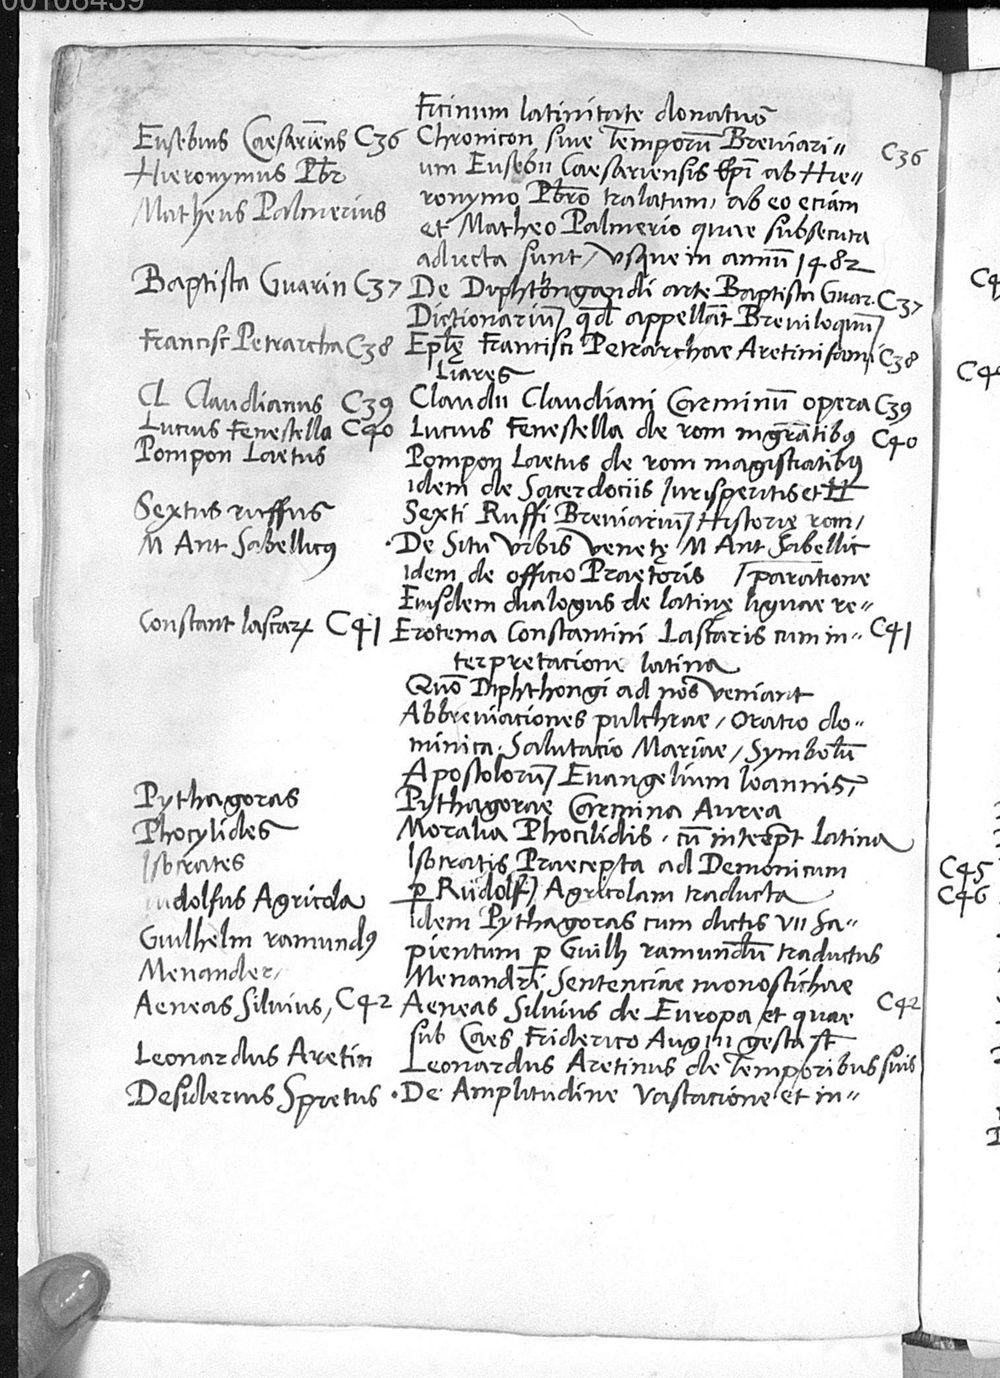 00106439
Ficinum latinitate donatus
Eusebius Caesariēns C36 Chronicon siue Temporū Breuiari= C36
Hieronymus Pbr um Eusebii Caesariensis Ep̄i ab Hie=
ronymo Pbrō tralatum, ab eo eciam
Matheus Palmerius et Matheo Palmerio quae subsecuta
adiecta sunt, Vsque in annū 1482
Baptista Guarin C37 De Diphthongandi arte Baptista Guar. C37
Dictionarium qd appellāt Breuiloquū
Francisc Petrarcha C38 Epl̄ę Francisci Petrarchae Aretini fami C38
liares
Cl Claudianus C39 Claudii Claudiani Carminū opera C39
Lucius Fenestella C40 Lucius Fenestella de rom mgr̄atibꝰ C40
Pompon Laetus Pompon Laetus de rom magistratibꝰ
idem de Sacerdociis Iurisperitis et ll
Sextus ruffus Sexti Ruffi Breuiarium Historię rom/
M Ant Sabellicꝰ De Situ Vrbis Venetę M Ant Sabellic
idem de officio Praetoris / paratione
Eiusdem dialogus de latinę liguae re=
Constant lascar C41 Erotema Constantini Lascaris cum in= C41
terpretacione latina
Quō Diphthongi ad nos veniant
Abbreuiaciones pulchrae, Oratio do=
minica. Salutacio Mariae, Symbolū
Apostolorū Euangelium Ioannis,
Pythagoras Pythagorae Carmina Aurea
Phocylides Moralia Phocilidis. cū interpt latina
Isocrates Isocratis Praecepta ad Demonicum
udolfus Agricola p Rudolf Agricolam traducta
Idem Pythagoras cum dictis VII Sa=
Guilhelm ramundꝰ pientum p Guilh ramundū traductus
Menander, Menandri Sentenciae monostichae
Aeneas Siluius, C42 Aeneas Siluius de Europa et quae C42
sub Caes Friderico Aug III gesta st
Leonardus Aretin Leonardus Aretinus de Temporibus suis
Desiderius Spretus De Amplitudine Vastacione et in=
C45
C46